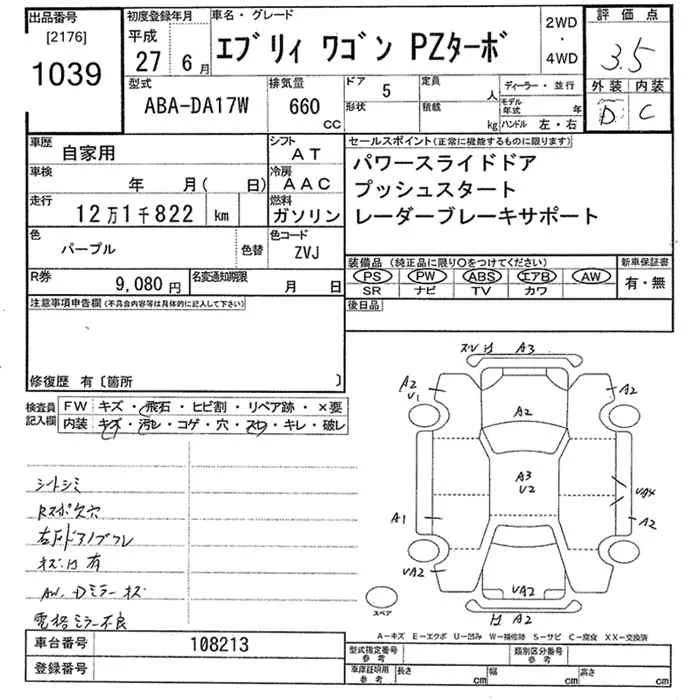 出品番号 初度登録年月 車名・グレード 2WD・4WD 評価点
[2176] 平成
1039 27 6月 エブリィ ワゴン PZターボ 3.5
型式 排気量 ドア 定員 ディーラー・並行 外装 内装
ABA-DA17W 660 CC 5 人 D C
形状 積載 kg モデル年式 年
ハンドル 左・右
車歴 自家用 シフト AT
車検 年 月( 日) 冷房 AAC
走行 12万1千822 km 燃料 ガソリン
色 パープル 色替 色コード ZVJ
R券 9,080円 名変通知期限 月 日
セールスポイント(正常に機能するものに限ります)
パワースライドドア
プッシュスタート
レーダーブレーキサポート
装備品 (純正品に限り○をつけてください) 新車保証書
PS PW ABS エアB AW 有・無
SR ナビ TV カワ
後日品
注意事項申告欄(不具合内容等は具体的に記入して下さい)
修復歴 有〔箇所 〕
検査員記入欄 FW キズ・飛石・ヒビ割・リペア跡・×要
内装 キズ・汚レ・コゲ・穴・スレ・キレ・破レ
シートシミ
キズ 有
AW、Dミラーキズ
電格ミラー不良
A3
A2
U1
A2
A2
A3
U2
A1
A2
VA2
VA2
A2
スペア
A-キズ E-エクボ U-凹み W-補修跡 S-サビ C-腐食 XX-交換済
車台番号 108213
登録番号
型式指定番号 参考 類別区分番号 参考
車庫証明用 参考 長さ cm 幅 cm 高さ cm